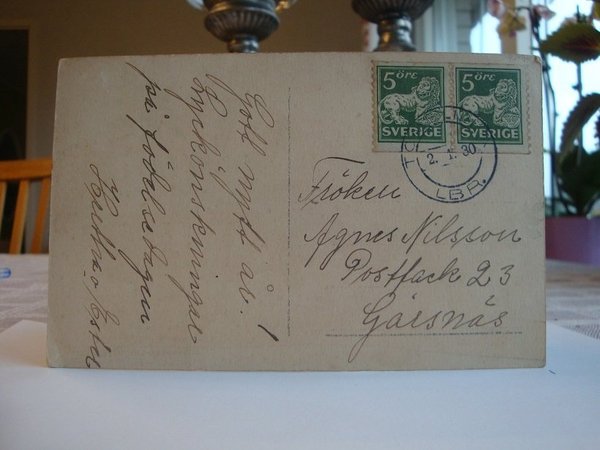 Gott nytt år!
Lyckönskningar
på födelsedagen
5 ÖRE
SVERIGE
5 ÖRE
SVERIGE
2. 1. 30
LBR.
Fröken
Agnes Nilsson
Postfack 23
Gärsnäs